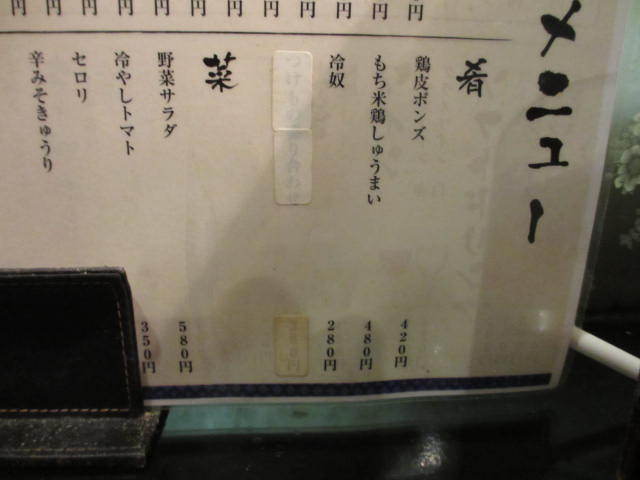 メニュー
円 円 円 円 円 円 円 円 円 円 円 円
肴
鶏皮ポンズ 420円
もち米鶏しゅうまい 480円
冷奴 280円
菜
野菜サラダ 580円
冷やしトマト 350円
セロリ
辛みそきゅうり